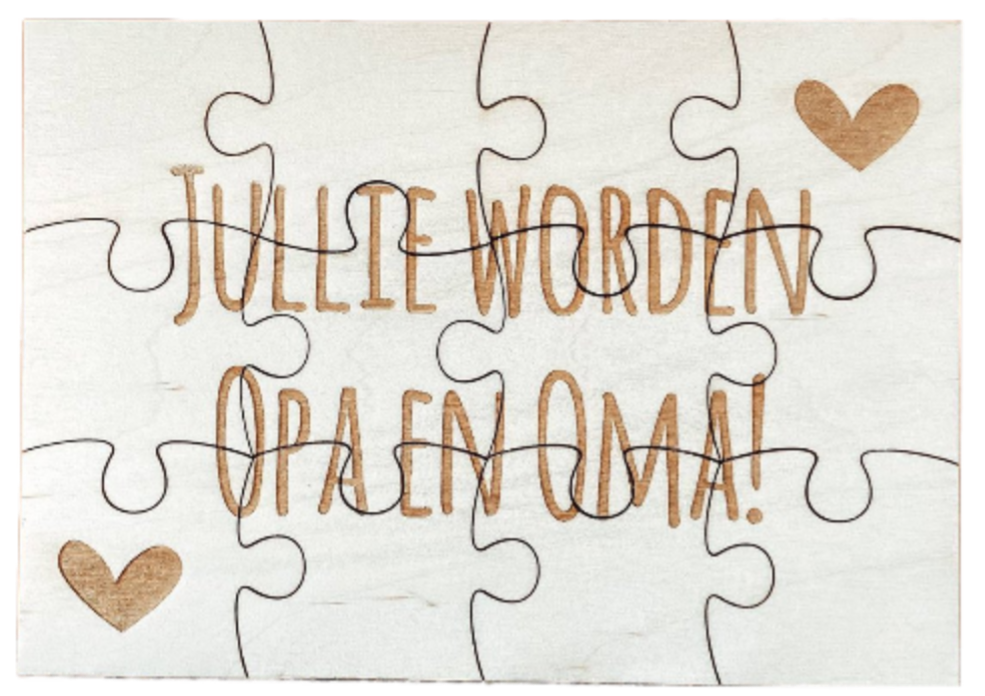 JULLIE WORDEN
OPA EN OMA!